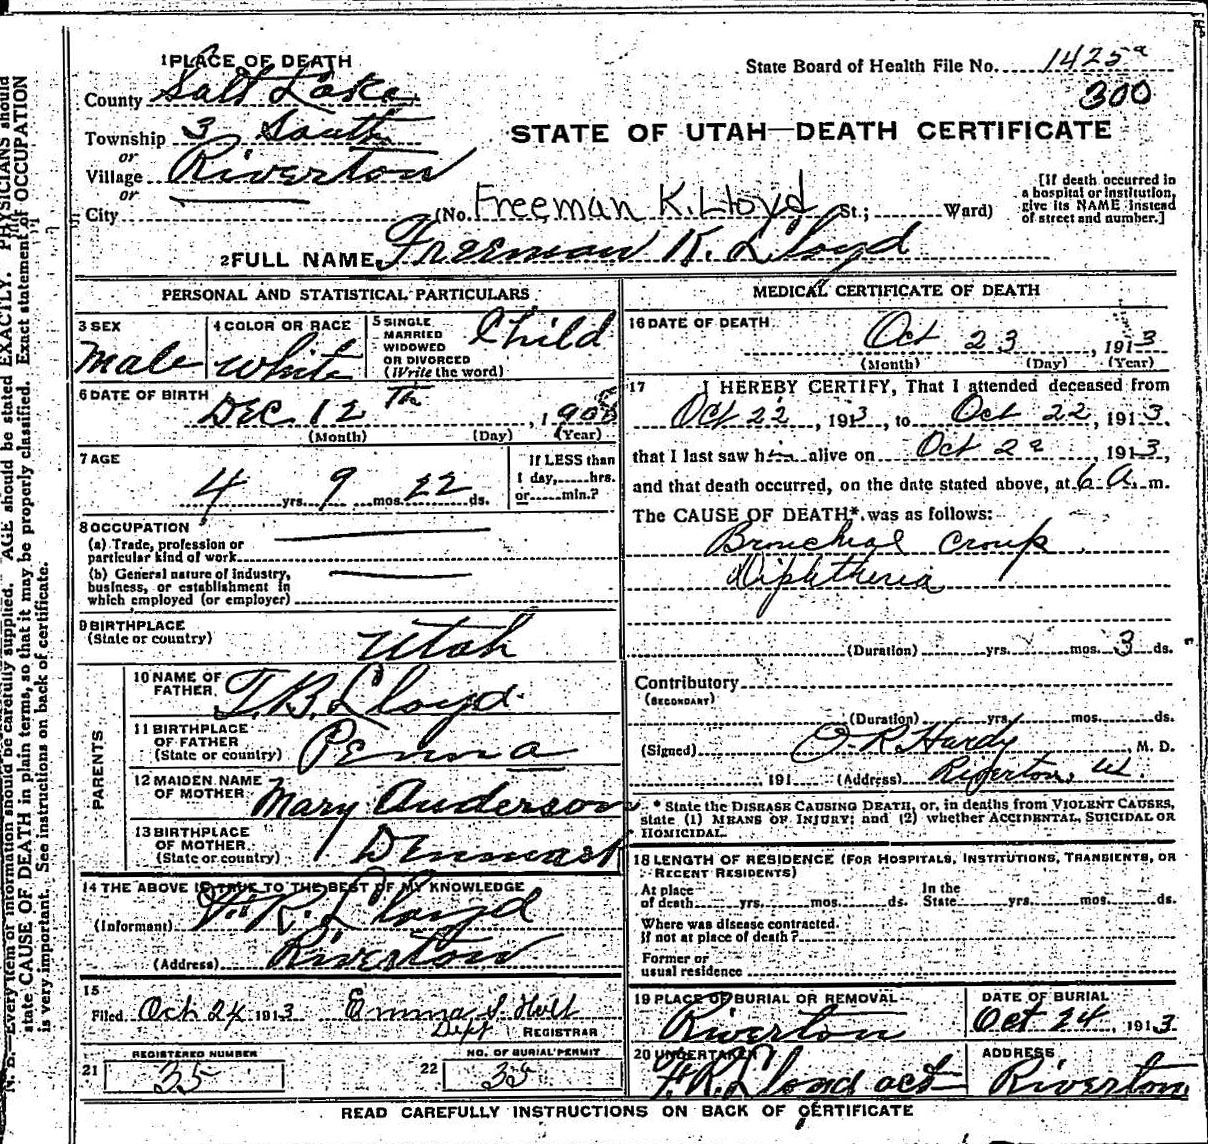 1 PLACE OF DEATH
County Salt Lake
Township 3 South
or
Village Riverton
or
City
State Board of Health File No. 1425a
300
STATE OF UTAH—DEATH CERTIFICATE
(No. Freeman K. Lloyd St.; Ward)
[If death occurred in a hospital or institution, give its NAME instead of street and number.]
2 FULL NAME Freeman K. Lloyd
PERSONAL AND STATISTICAL PARTICULARS
3 SEX male
4 COLOR OR RACE white
5 SINGLE, MARRIED WIDOWED OR DIVORCED (Write the word) Child
6 DATE OF BIRTH Dec 12 Th, 1908
(Month) (Day) (Year)
7 AGE 4 yrs. 9 mos. 22 ds.
If LESS than 1 day, hrs. or min.?
8 OCCUPATION
(a) Trade, profession or particular kind of work
(b) General nature of industry, business, or establishment in which employed (or employer)
9 BIRTHPLACE (State or country) Utah
PARENTS
10 NAME OF FATHER T. B. Lloyd
11 BIRTHPLACE OF FATHER (State or country) Penna
12 MAIDEN NAME OF MOTHER Mary Anderson
13 BIRTHPLACE OF MOTHER (State or country) Denmark
14 THE ABOVE IS TRUE TO THE BEST OF MY KNOWLEDGE
(Informant) F. R. Lloyd
(Address) Riverton
15
Filed Oct 24 1913 Emma S Holt
Dept REGISTRAR
REGISTERED NUMBER
21 35
NO. OF BURIAL PERMIT
22 35
MEDICAL CERTIFICATE OF DEATH
16 DATE OF DEATH Oct 23, 1913
(Month) (Day) (Year)
17 I HEREBY CERTIFY, That I attended deceased from
Oct 22, 1913, to Oct 22, 1913.
that I last saw him alive on Oct 22, 1913,
and that death occurred, on the date stated above, at 6 A. m.
The CAUSE OF DEATH* was as follows:
Bronchial Croup
Diphtheria
(Duration) yrs. mos. 3 ds.
Contributory
(SECONDARY)
(Duration) yrs. mos. ds.
(Signed) O. R. Hardy, M. D.
191 (Address) Riverton, U.
* State the DISEASE CAUSING DEATH, or, in deaths from VIOLENT CAUSES,
state (1) MEANS OF INJURY; and (2) whether ACCIDENTAL, SUICIDAL OR
HOMICIDAL.
18 LENGTH OF RESIDENCE (FOR HOSPITALS, INSTITUTIONS, TRANSIENTS, OR
RECENT RESIDENTS)
At place of death yrs. mos. ds. In the State yrs. mos. ds.
Where was disease contracted.
If not at place of death?
Former or
usual residence
19 PLACE OF BURIAL OR REMOVAL Riverton
DATE OF BURIAL Oct 24, 1913
20 UNDERTAKER F. R. Lloyd act
ADDRESS Riverton
READ CAREFULLY INSTRUCTIONS ON BACK OF CERTIFICATE
N. B.—Every item of information should be carefully supplied. AGE should be stated EXACTLY. PHYSICIANS should
state CAUSE OF DEATH in plain terms, so that it may be properly classified. Exact statement of OCCUPATION
is very important. See instructions on back of certificate.